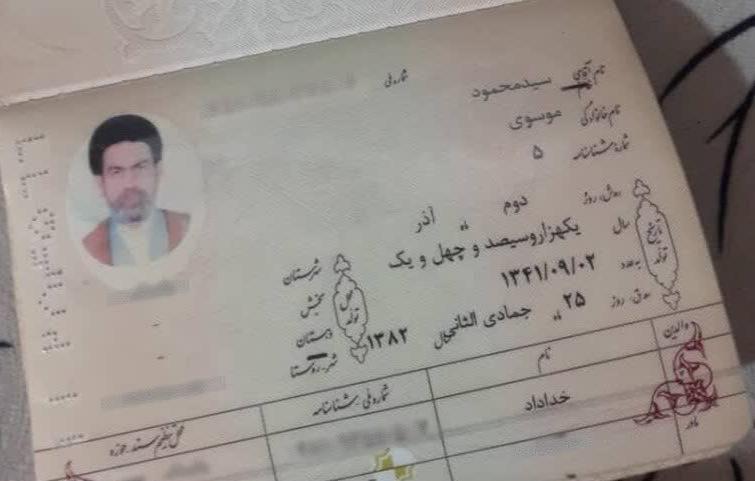 شماره ملی
نام آقای سیدمحمود
نام خانوادگی موسوی
شماره شناسنامه ۵
ش. روز دوم ماه آذر
سال یکهزاروسیصد و چهل و یک
به عدد ۱۳۴۱/۰۹/۰۲
ق. روز ۲۵ ماه جمادی الثانی سال ۱۳۸۲
تاریخ تولد
محل تولد
شهرستان
بخش
دهستان
شهر-روستا
والدین
نام
شماره ملی شناسنامه
خداداد
مادر